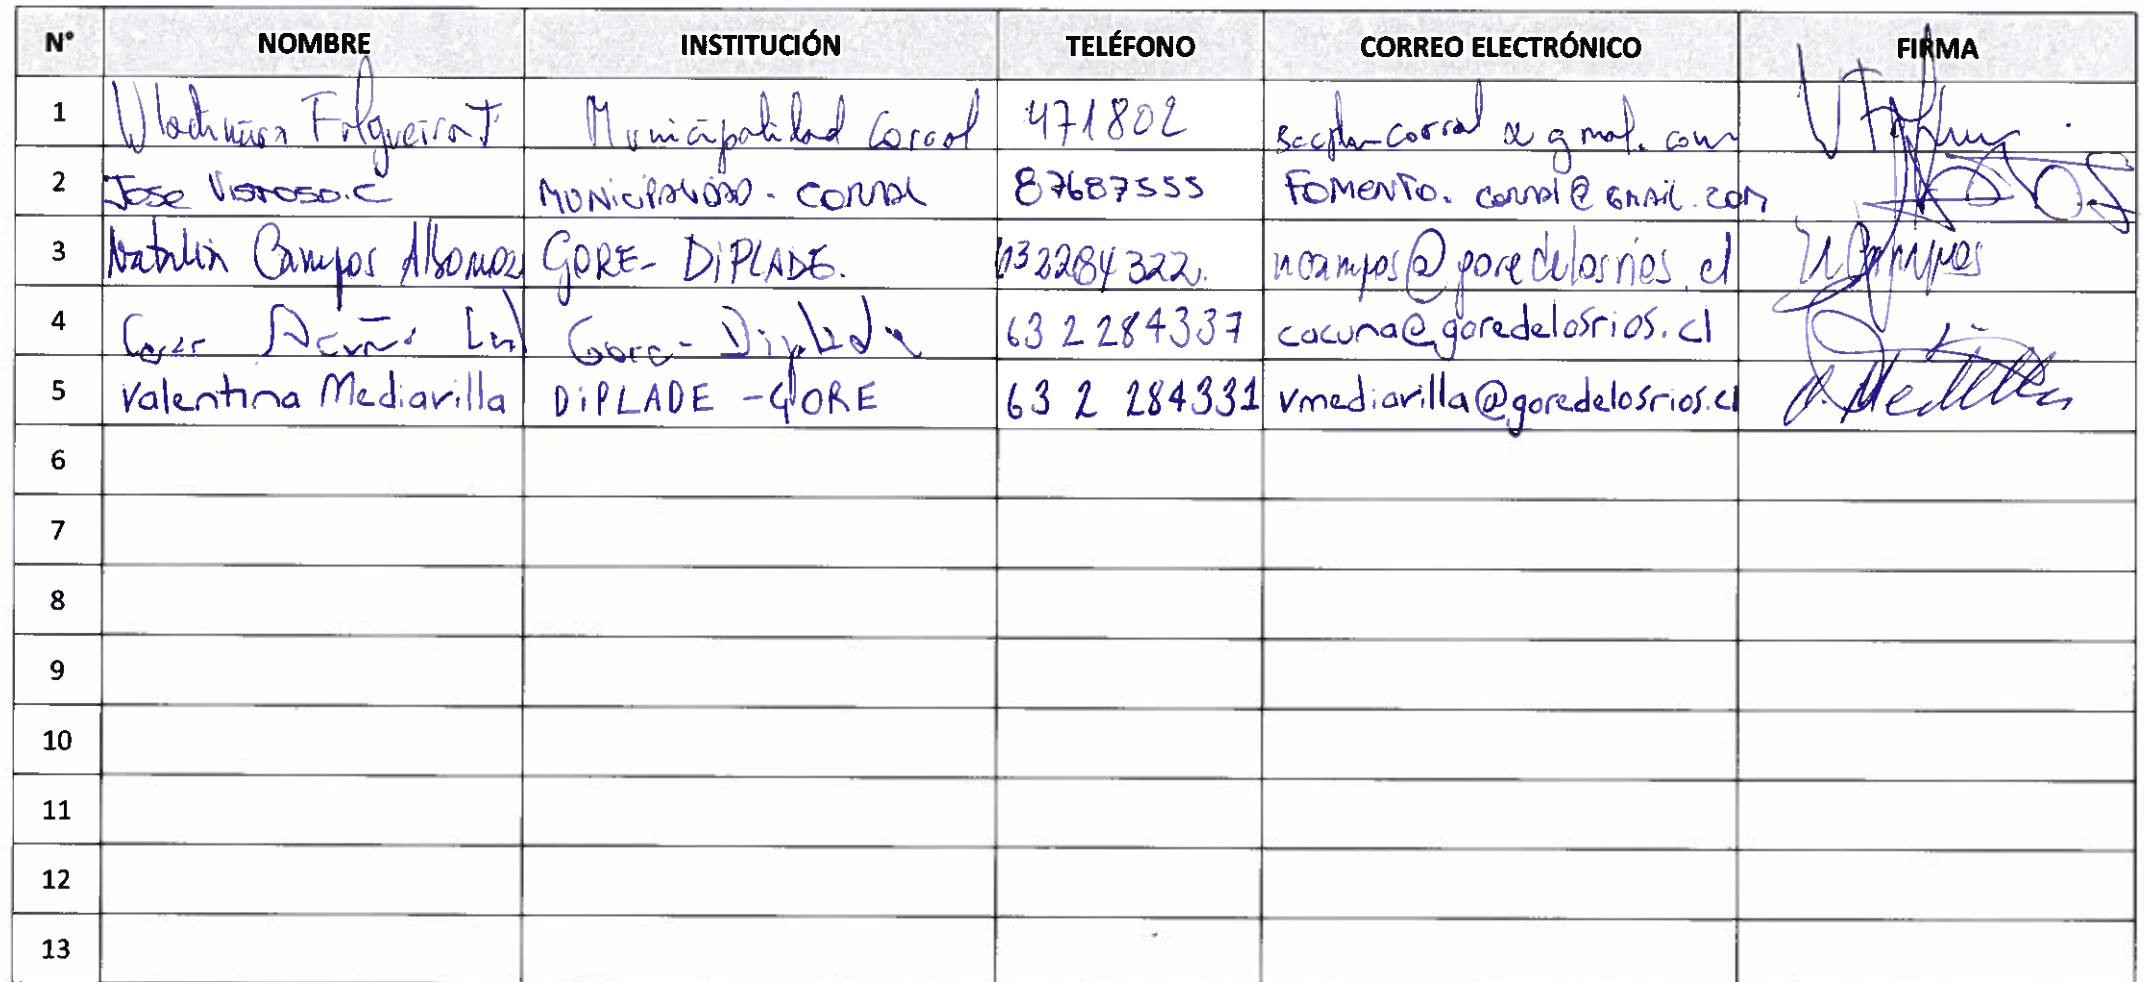 N° NOMBRE INSTITUCIÓN TELÉFONO CORREO ELECTRÓNICO FIRMA
1 Wladimir Filgueira T Municipalidad Corral 471802 secplan-corral @ gmail. com
2 Jose C MUNICIPALIDAD - CORRAL 87687555 FOMENTO. corral@GMAIL.COM
3 Natalia Campos Albornoz GORE- DiPLADE. 632284322. ncampos@goredelosrios.cl NCampos
4 Acuña Gore - Diplade 63 2 284337 cacuna@goredelosrios.cl
5 Valentina Mediavilla DiPLADE - GORE 63 2 284331 vmediavilla@goredelosrios.cl
6
7
8
9
10
11
12
13